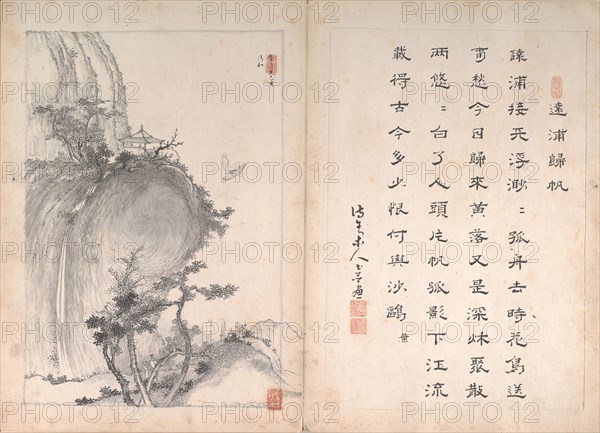 遠浦歸帆
遠浦接天浮渺〻孤舟去時花鳥送
客愁今日歸來黃落又是深秋聚散
兩悠〻白了人頭片帆孤影下江流
載得古今多少恨何與沙鷗
PHOTO12